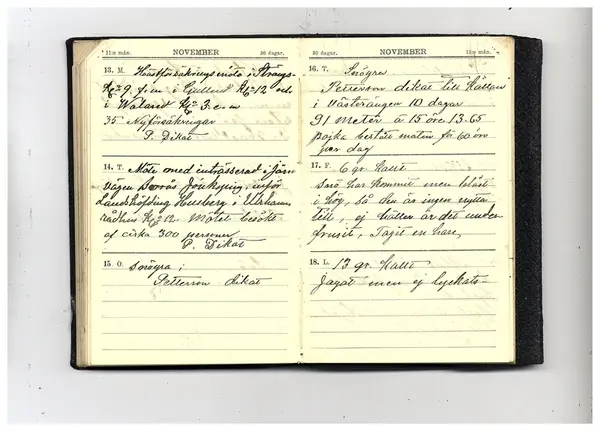 11:e mån. NOVEMBER 30 dagar.
13. M. Hästförsäkringsmöte i Strängs-
Kl 9. f.m. i Gullered Kl 12 och
i Walared Kl 3. e.m
35 Nyförsäkringar
P. Dikat
14. T. Möte med intresserad i järn
vägen Borås Jönköping, inför
Landshöfding Husberg i Ulrihams
rådhus Kl 12. Mötet besökt
af cirka 300 personer
P. Dikat
15. O. Snögra;
Petterson dikat
30 dagar. NOVEMBER 11:e mån.
16. T. Snögra
Petterson dikat till Hättan
i Västerängen 10 dagar
91 meter a 15 öre 13.65
pojke bestått maten för 60 öre
per dag
17. F. 6 gr. Kallt
Snö har kommit men blåst
i hög, så den är ingen nytta
till, ej heller är det under
frusit, Tagit en hare,
18. L. 13 gr. Kallt
Jagat men ej lyckats-